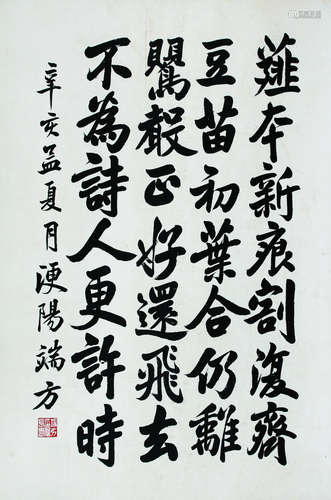 韮夲新痕割復齊
豆苗初葉合仍離
鸎聲正好還飛去
不為詩人更許時
辛亥孟夏月浭陽端方